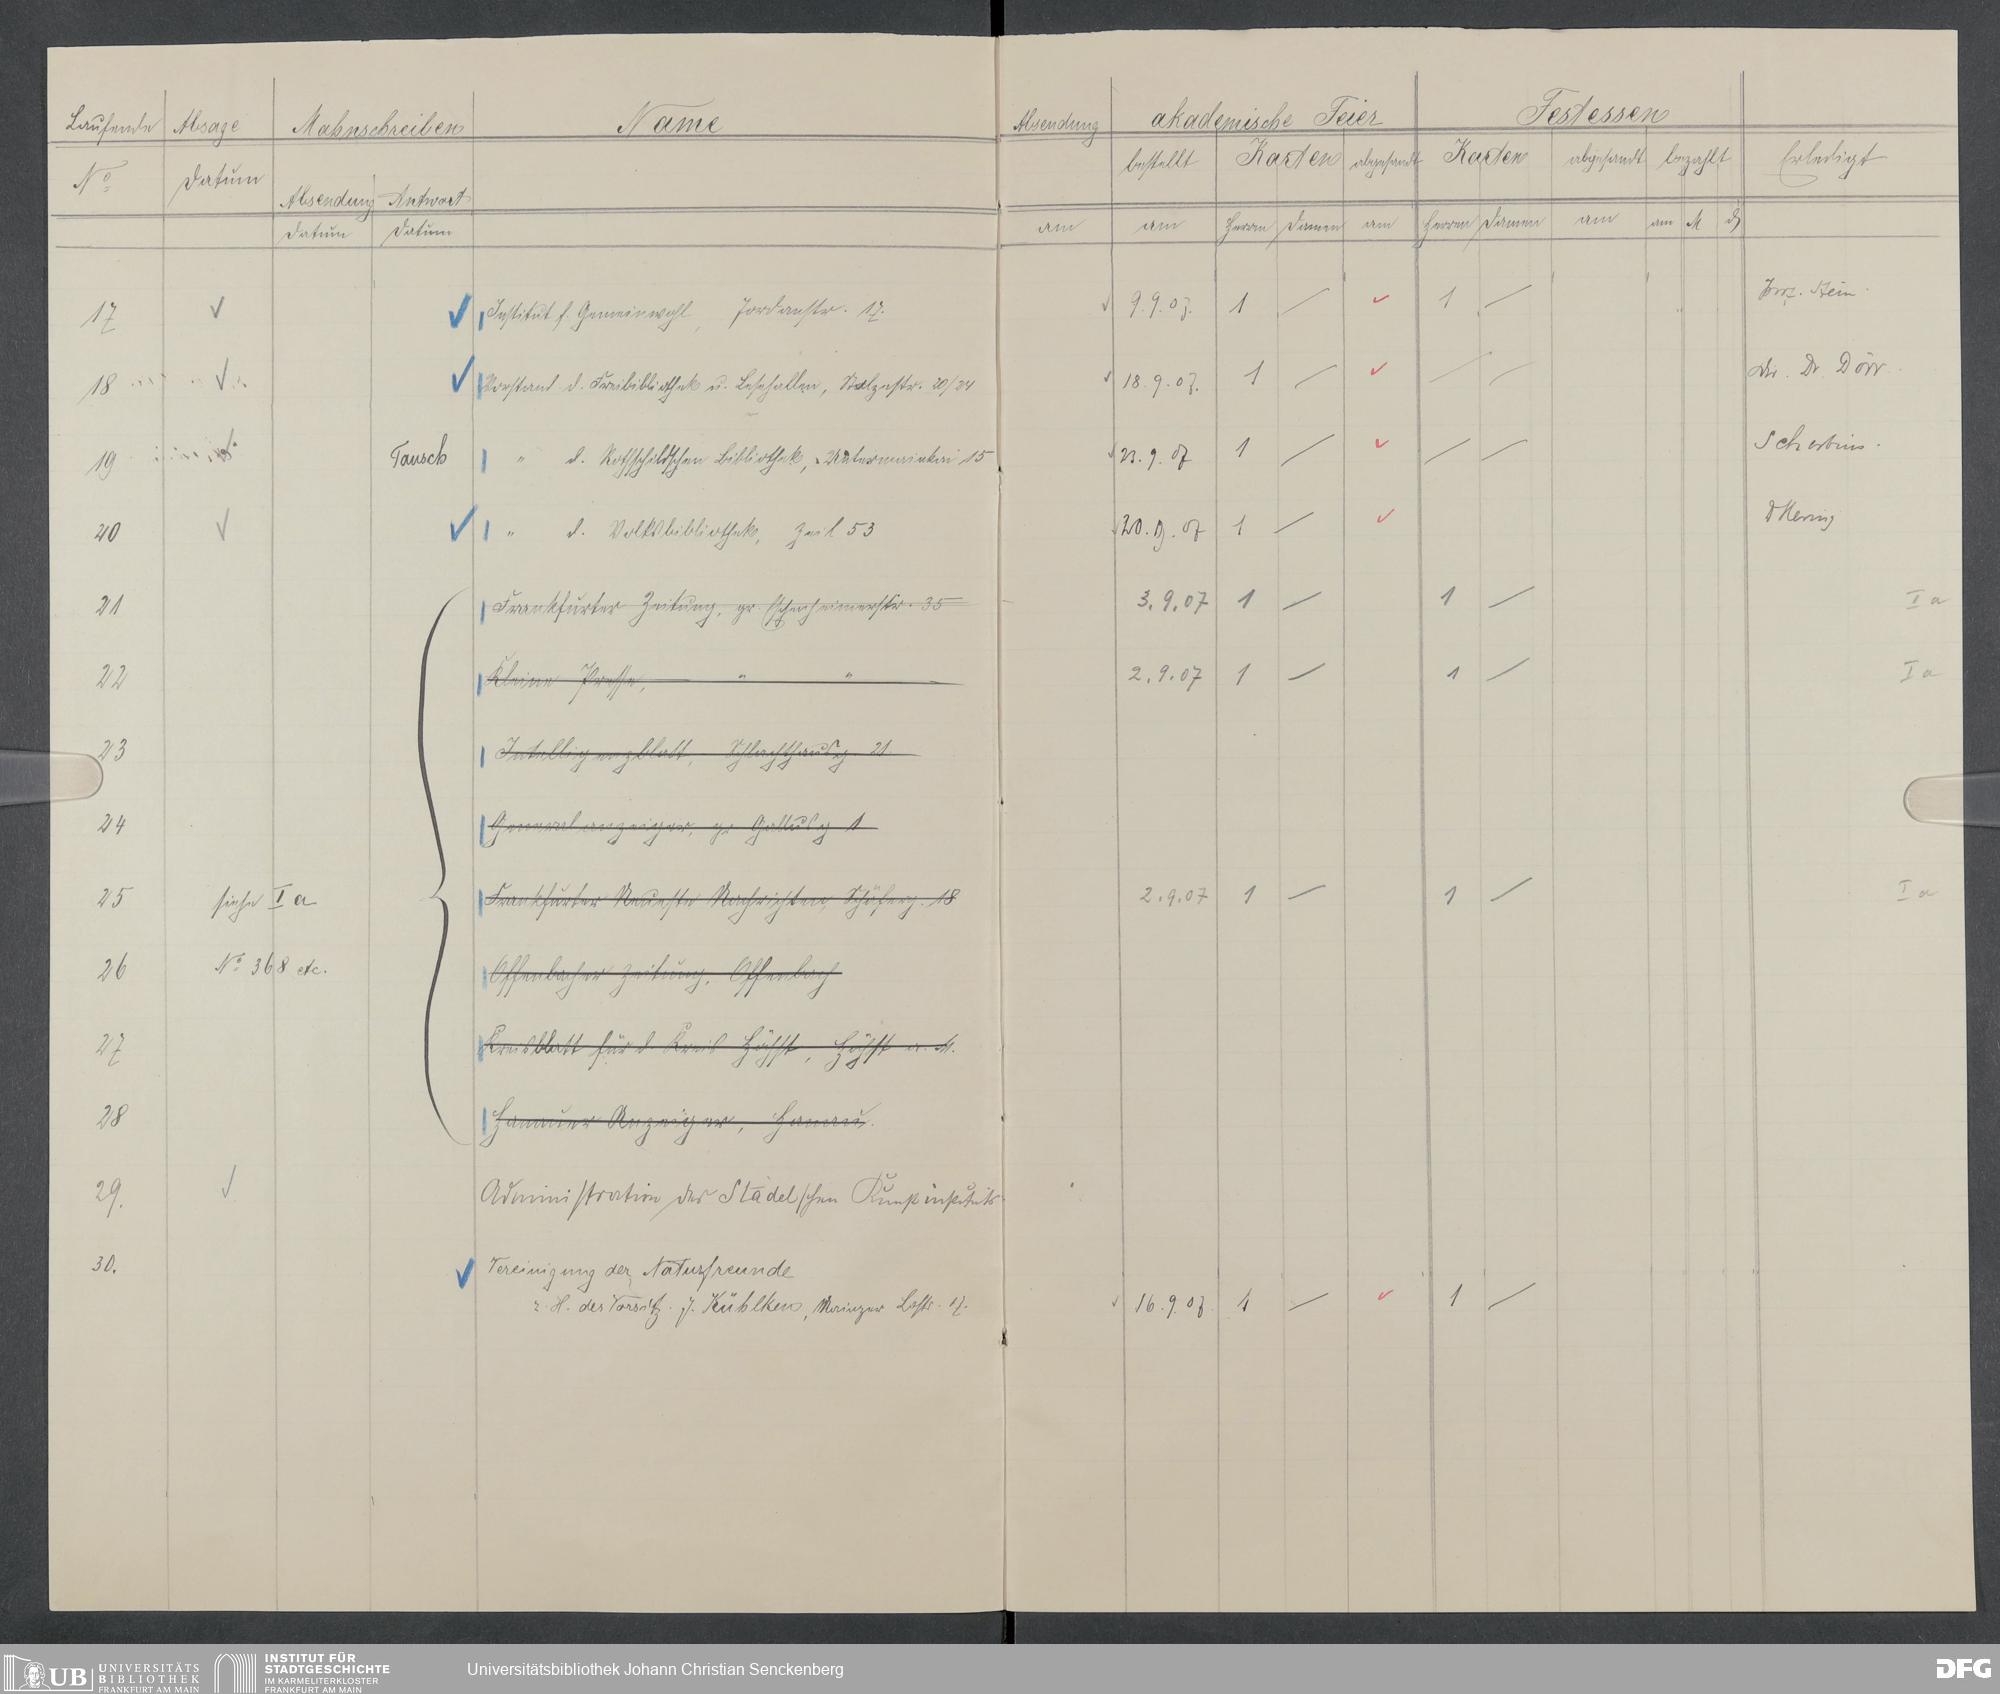 Laufende Absage Mahnschreiben Name Absendung akademische Feier Festessen
No Datum Absendung Antwort bestellt Karten abgesandt Karten abgesandt bezahlt Erledigt
Datum Datum am am Herren Damen am Herren Damen am am M
17 ✓ ✓ Institut f. Gemeinwohl, Jordanstr. 17. 9.9.07. 1 — ✓ 1 — Stein.
18 ✓ ✓ Vorstand d. Freibibliothek u. Lesehallen, Stolzestr. 20/24 18.9.07. 1 — ✓ — — Dr. Dörr
19 Tausch " d. Rothschildschen Bibliothek, Untermainkai 15 23.9.07 1 — ✓ — —
20 ✓ ✓ " d. Volksbibliothek, Zeil 53 20.9.07 1 — ✓
21 Frankfurter Zeitung, gr. Eschenheimerstr. 35 3.9.07 1 — 1 — I a
22 Kleine Presse, " " 2.9.07 1 — 1 — I a
23 Intelligenzblatt, Schlachthausg. 21
24 Generalanzeiger, gr Gallusg 1
25 siehe I a Frankfurter Neueste Nachrichten, Schäferg. 18 2.9.07 1 — 1 — I a
26 No 368 etc. Offenbacher Zeitung, Offenbach
27 Kreisblatt für d. Kreis Höchst, Höchst a. M.
28 Hanauer Anzeiger, Hanau.
29. ✓ Administration des Städelschen Kunstinstituts
30. ✓ Vereinigung der Naturfreunde
z. H. des Vorsitz. J. Kühlken, Mainzer Ldstr. 17. 16.9.07 1 — ✓ 1 —
UB UNIVERSITÄTS BIBLIOTHEK FRANKFURT AM MAIN
INSTITUT FÜR STADTGESCHICHTE IM KARMELITERKLOSTER FRANKFURT AM MAIN
Universitätsbibliothek Johann Christian Senckenberg
DFG